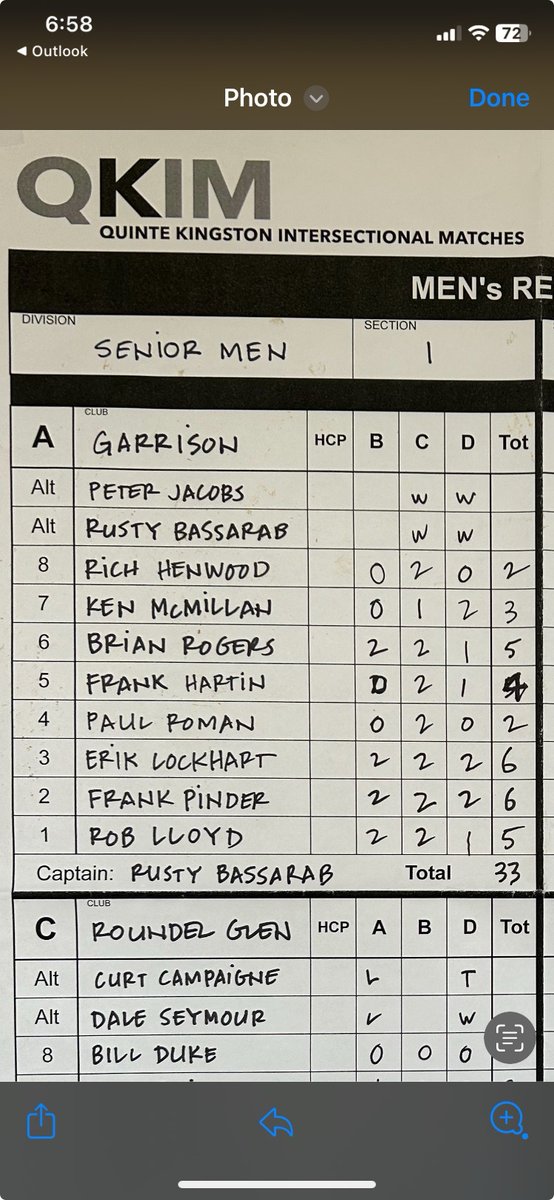 6:58
72
◄ Outlook
Photo
Done
QKIM
QUINTE KINGSTON INTERSECTIONAL MATCHES
MEN's RE
DIVISION SECTION
SENIOR MEN 1
CLUB
A GARRISON HCP B C D Tot
Alt PETER JACOBS W W
Alt RUSTY BASSARAB W W
8 RICH HENWOOD 0 2 0 2
7 KEN McMILLAN 0 1 2 3
6 BRIAN ROGERS 2 2 1 5
5 FRANK HARTIN 2 1
4 PAUL ROMAN 0 2 0 2
3 ERIK LOCKHART 2 2 2 6
2 FRANK PINDER 2 2 2 6
1 ROB LLOYD 2 2 1 5
Captain: RUSTY BASSARAB Total 33
CLUB
C ROUNDEL GLEN HCP A B D Tot
Alt CURT CAMPAIGNE L T
Alt DALE SEYMOUR W
8 BILL DUKE 0 0 0